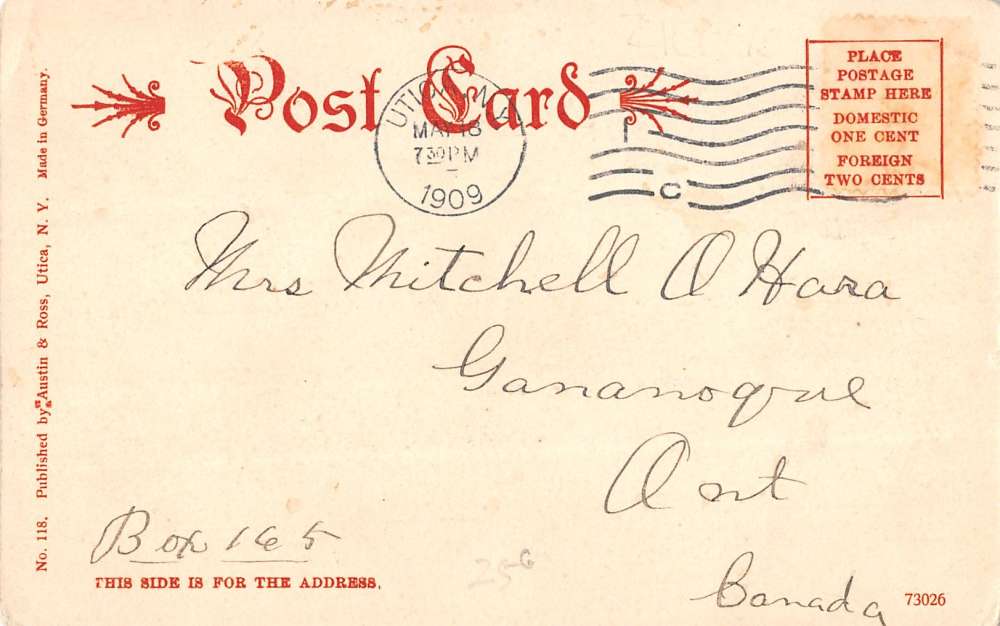 Post Card
UTICA, N.Y.
MAY 18
7 30 PM
1909
I
C
PLACE
POSTAGE
STAMP HERE
DOMESTIC
ONE CENT
FOREIGN
TWO CENTS
No. 118. Published by Austin & Ross, Utica, N. Y. Made in Germany.
Mrs Mitchell O Hara
Gananoque
Ont
Box 165
256
THIS SIDE IS FOR THE ADDRESS.
Canada
73026